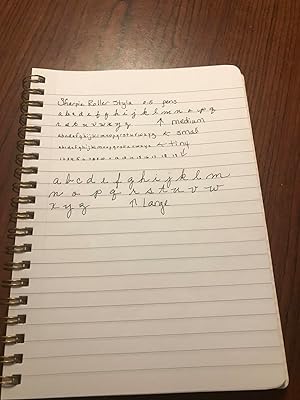 Sharpie Roller Style 0.5 pens
a b c d e f g h i j k l m n o p q
r s t u v w x y z ↑ medium
abcdefghijklmnopqrstuvwxyz ← small
abcdefghijklmnopqrstuvwxyz ← tiny
a b c d e f g h i j k l m
n o p q r s t u v w
x y z ↑ Large